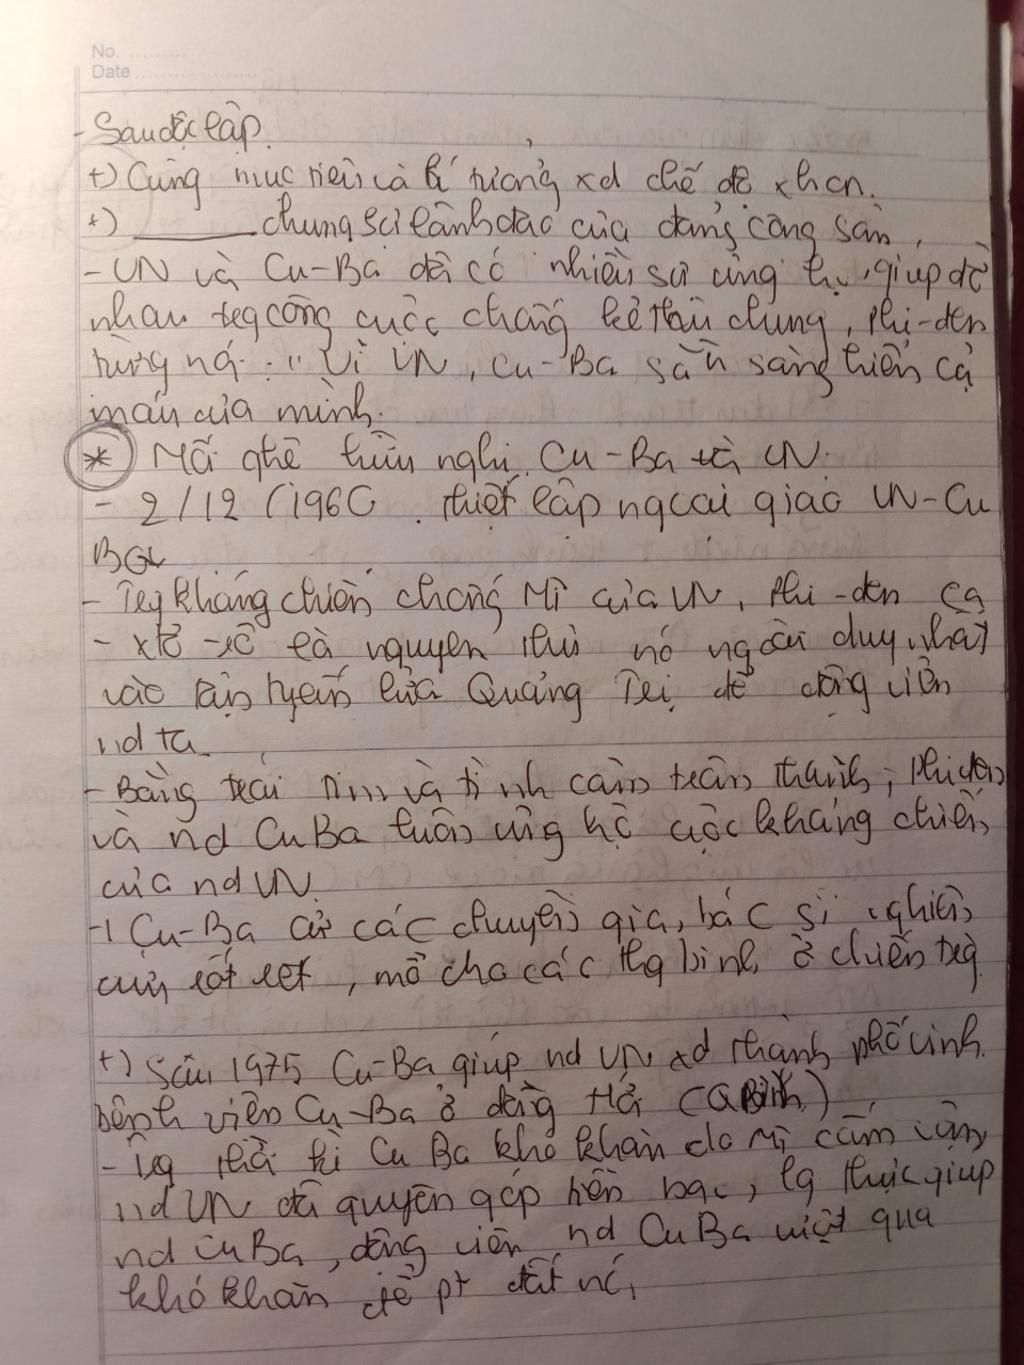 No. ..........
Date ....................
- Sau độc lập.
+) Cùng mục tiêu và lí tưởng xd chế độ xhcn.
+) ______ chung sự lãnh đạo của đảng cộng sản,
- VN và Cu-Ba đã có nhiều sự ủng hộ, giúp đỡ
nhau trg công cuộc chống kẻ thù chung, Phi-den
từng nói: "Vì VN, Cu-Ba sẵn sàng hiến cả
máu của mình.
* Mối qhệ hữu nghị Cu-Ba và VN.
- 2/12/1960. thiết lập ngoại giao VN-Cu
Ba
- Trg kháng chiến chống Mĩ của VN, Phi-den Ca
- xtơ-rô là nguyên thủ nc ngoài duy nhất
vào tận tuyến lửa Quảng Trị để động viên
nd ta.
- Bằng trái tim và tình cảm chân thành, Phi den
và nd Cu Ba luôn ủng hộ cuộc kháng chiến
của nd VN.
+) Cu-Ba cử các chuyên gia, bác sĩ nghiên
cứu sốt rét, mổ cho các thg binh ở chiến trg
+) Sau 1975 Cu-Ba giúp nd VN xd thành phố vinh
bệnh viện Cu-Ba ở đồng Hới (QBình)
- Trg thời kì Cu Ba khó khăn do Mĩ cấm vận,
nd VN đã quyên góp tiền bạc, lg thực giúp
nd Cu Ba, động viên nd Cu Ba vượt qua
khó khăn để pt đất nc,